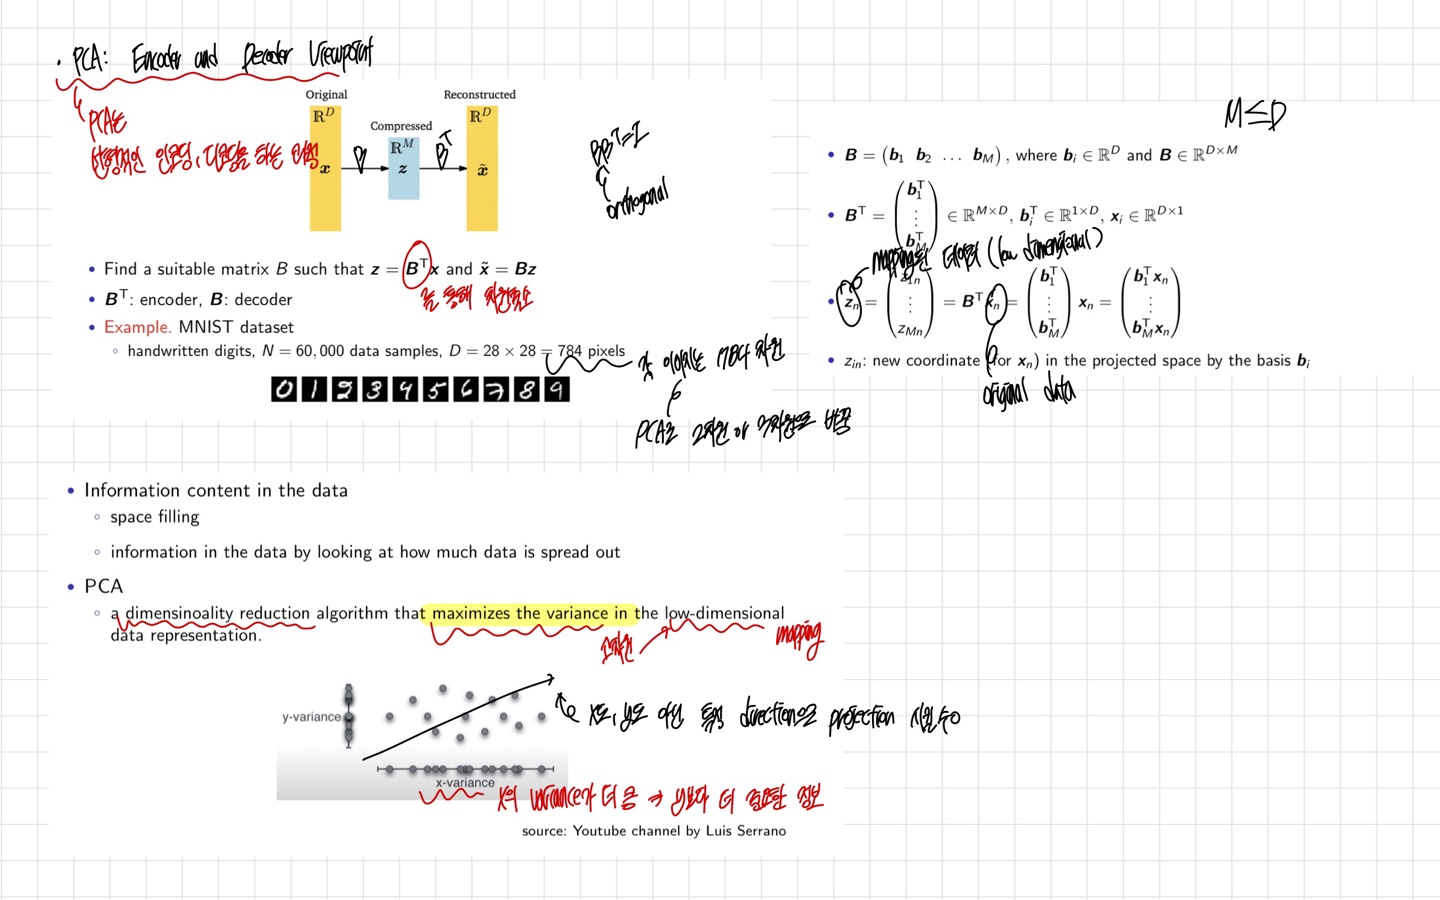 · PCA: Encoder and Decoder Viewpoint
PCA는
선형적인 인코딩, 디코딩을 하는 과정
Original
Reconstructed
ℝ^D
ℝ^D
Compressed
ℝ^M
x B z B^T x̃
BB^T=I
orthogonal
• Find a suitable matrix B such that z = B^T x and x̃ = Bz
을 통해 차원축소
• B^T: encoder, B: decoder
• Example. MNIST dataset
◦ handwritten digits, N = 60,000 data samples, D = 28 × 28 = 784 pixels
각 이미지는 784 차원
0 1 2 3 4 5 6 7 8 9
PCA로 2차원 or 3차원으로 바꿈
M≤D
• B = (b_1 b_2 ... b_M), where b_i ∈ ℝ^D and B ∈ ℝ^{D×M}
• B^T = (b_1^T ⋮ b_M^T) ∈ ℝ^{M×D}, b_i^T ∈ ℝ^{1×D}, x_i ∈ ℝ^{D×1}
mapping된 데이터 (low dimensional)
• z_n = (z_{1n} ⋮ z_{Mn}) = B^T x_n = (b_1^T ⋮ b_M^T) x_n = (b_1^T x_n ⋮ b_M^T x_n)
• z_{in}: new coordinate (for x_n) in the projected space by the basis b_i
original data
• Information content in the data
◦ space filling
◦ information in the data by looking at how much data is spread out
• PCA
◦ a dimensinoality reduction algorithm that maximizes the variance in the low-dimensional
data representation.
저차원
mapping
y-variance
x도, y도 아닌 특정 direction으로 projection 시킬수O
x-variance
x의 variance가 더 큼 → y보다 더 중요한 정보
source: Youtube channel by Luis Serrano